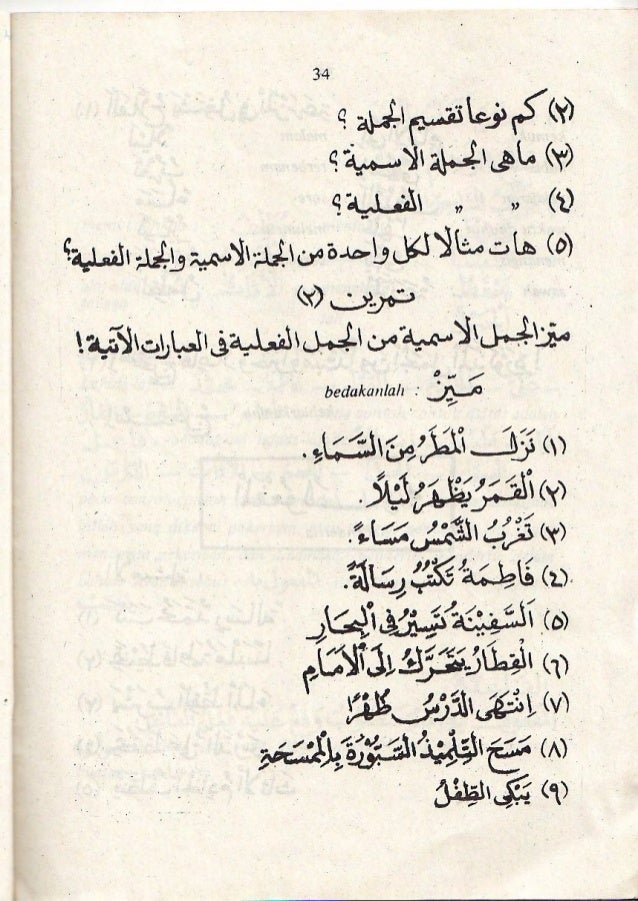 34
(٢) كم نوعا تقسيم الجملة ؟
(٣) ماهى الجملة الاسمية ؟
(٤) " " الفعلية ؟
(٥) هات مثالا لكل واحدة من الجملة الاسمية والجملة الفعلية ؟
تمرين (٢)
ميّز الجمل الاسمية من الجمل الفعلية فى العبارات الآتية !
مَيِّزْ : bedakanlah
(١) نَزَلَ الْمَطَرُ مِنَ السَّمَاءِ .
(٢) اَلْقَمَرُ يَظْهَرُ لَيْلاً .
(٣) تَغْرُبُ الشَّمْسُ مَسَاءً .
(٤) فَاطِمَةُ تَكْتُبُ رِسَالَةً .
(٥) اَلسَّفِيْنَةُ تَسِيْرُ فِى الْبِحَارِ
(٦) اَلْقِطَارُ يَتَحَرَّكُ اِلَى الْأَمَامِ
(٧) اِنْتَهَى الدَّرْسُ ظُهْرًا
(٨) مَسَحَ التِّلْمِيْذُ السَّبُّوْرَةَ بِالْمِمْسَحَةِ
(٩) يَبْكِى الطِّفْلُ